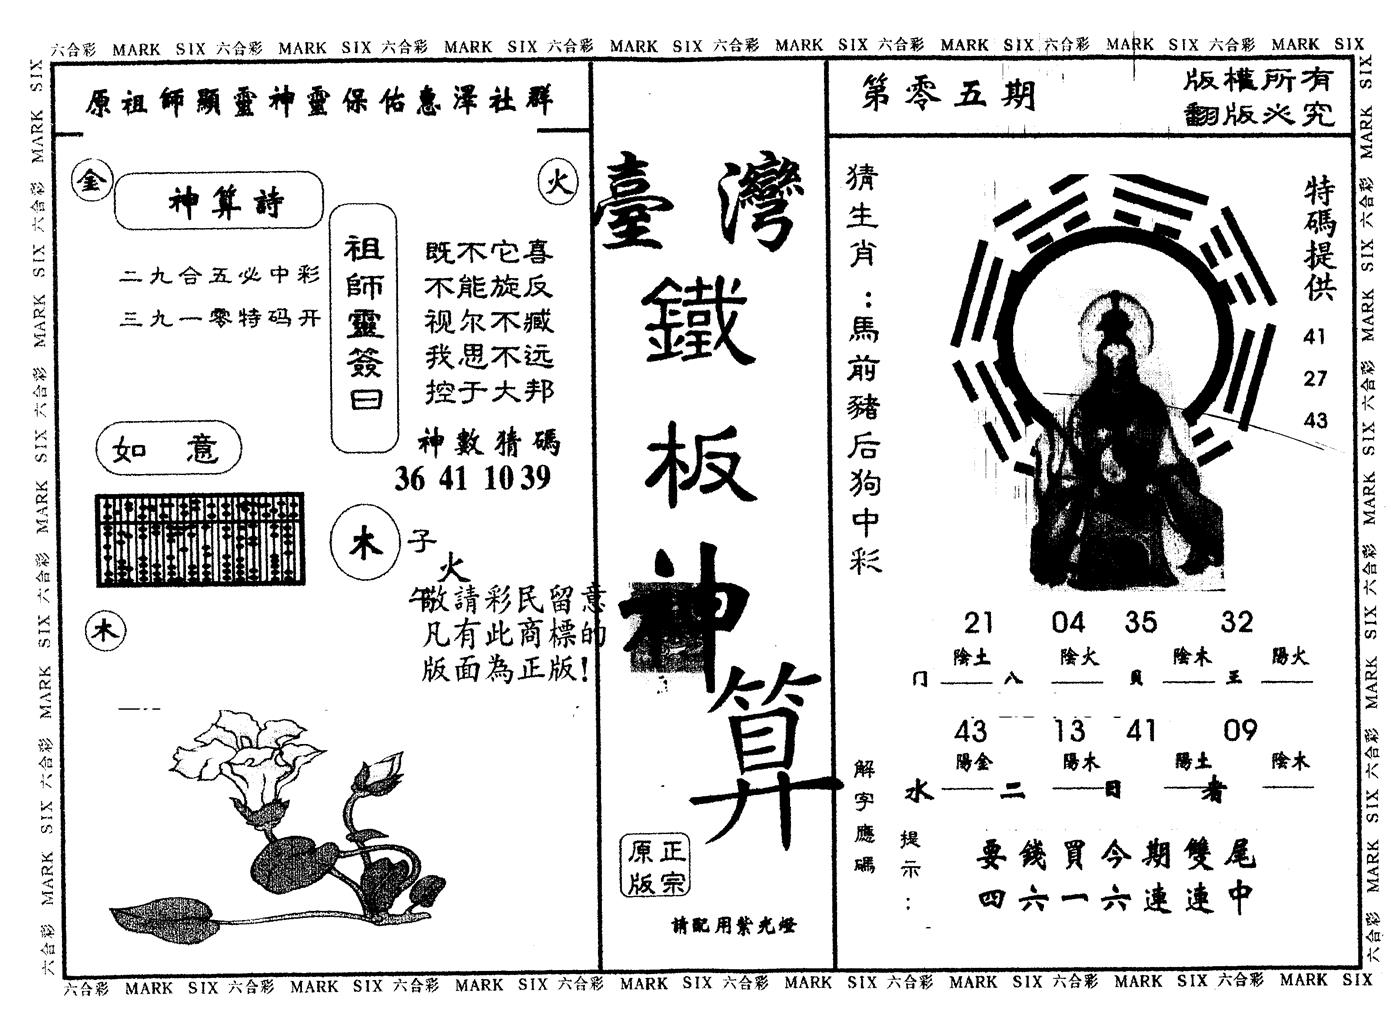 六合彩 MARK SIX 六合彩 MARK SIX 六合彩 MARK SIX 六合彩 MARK SIX 六合彩 MARK SIX 六合彩 MARK SIX 六合彩 MARK SIX 六合彩 MARK SIX
原祖師顯靈神靈保佑惠澤社群
金
神算詩
火
二九合五必中彩
三九一零特码开
祖師靈簽曰
既不它喜
不能旋反
视尔不臧
我思不远
控于大邦
神數猜碼
36 41 10 39
如意
木
子
火
午
敬請彩民留意
凡有此商標的
版面為正版!
木
臺灣
鐵
板
神
算
正宗
原版
請配用紫光燈
第零五期
版權所有
翻版必究
猜生肖:馬前豬后狗中彩
特碼提供
41
27
43
21 04 35 32
陰土 陰火 陰木 陽火
门 八 貝 王
43 13 41 09
陽金 陽木 陽土 陰木
水 二 日 者
解字應碼
提示:
要錢買今期雙尾
四六一六連連中
六合彩 MARK SIX 六合彩 MARK SIX 六合彩 MARK SIX 六合彩 MARK SIX 六合彩 MARK SIX 六合彩 MARK SIX 六合彩 MARK SIX 六合彩 MARK SIX